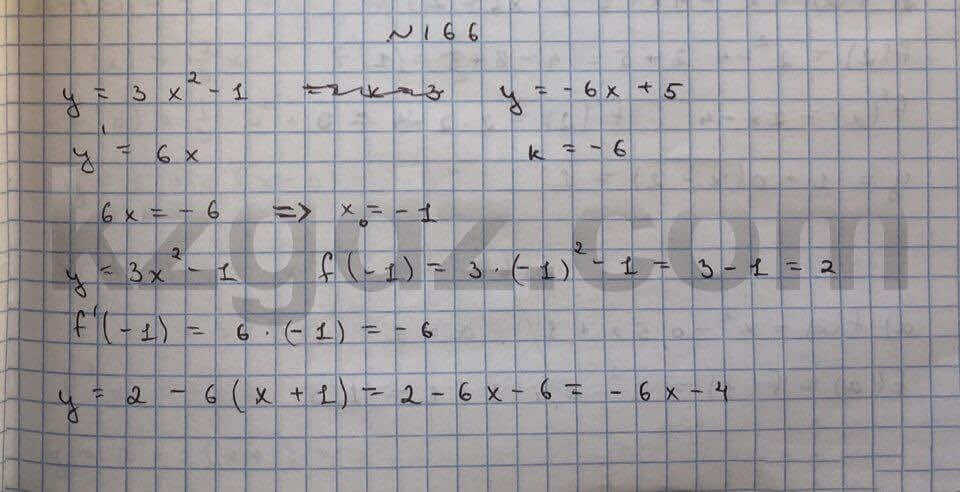 №166
y = 3x² - 1 => k = 3 y = -6x + 5
y' = 6x k = -6
6x = -6 => x₀ = -1
y = 3x² - 1 f(-1) = 3·(-1)² - 1 = 3 - 1 = 2
f'(-1) = 6·(-1) = -6
y = 2 - 6(x + 1) = 2 - 6x - 6 = -6x - 4
kzgdz.com